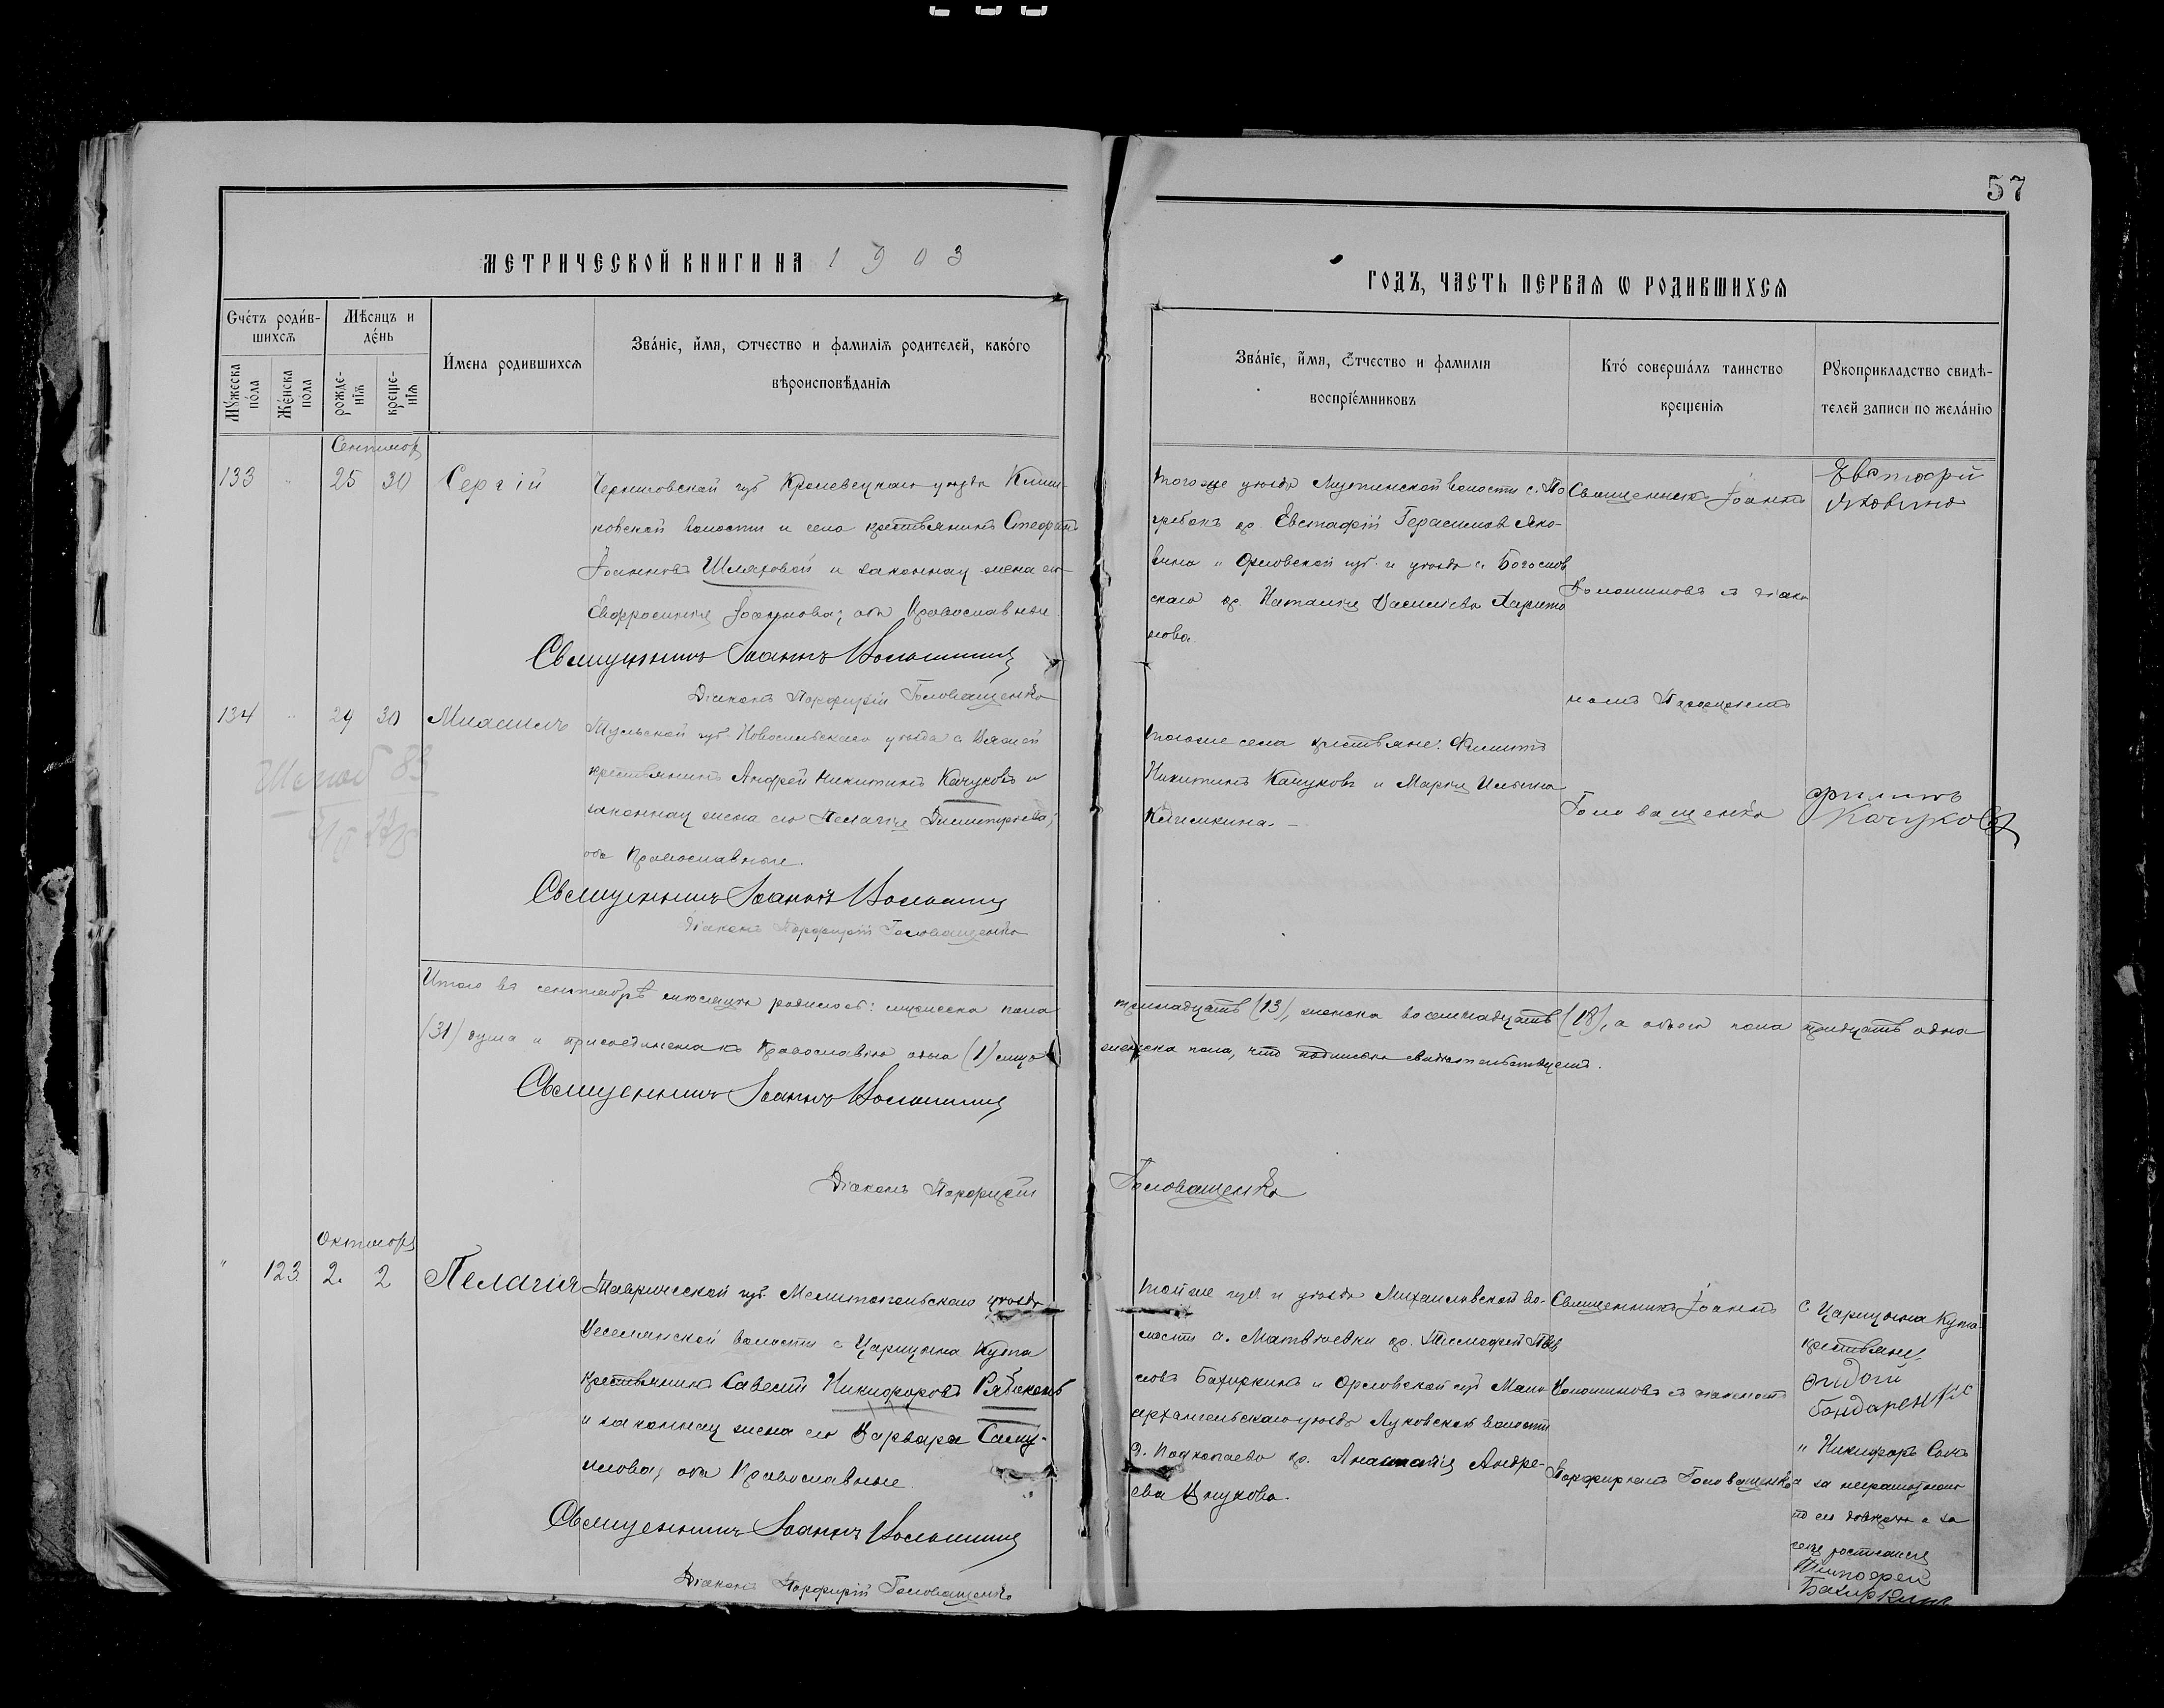 57
МЕТРИЧЕСКОЙ КНИГИ НА 1903
ГОДЪ, ЧАСТЬ ПЕРВАЯ Ѡ РОДИВШИХСЯ
Счетъ родив-
шихся
Мѣсяцъ и
день
Мужеска
пола
Женска
пола
рожде-
нія
креще-
нія
Имена родившихся
Званіе, имя, отчество и фамилія родителей, какого
вѣроисповѣданія
Званіе, имя, отчество и фамилія
воспріемниковъ
Кто совершалъ таинство
крещенія
Рукоприкладство свидѣ-
телей записи по желанію
Сентябрь
133 " 25 30 Сергій
Черниговской губ Кролевецкаго уѣзда
ковской волости и села крестьянинъ Стефанъ
Іоанновъ Шляховой и законная жена его
Евфросинія Іоаннова; оба Православные.
Священникъ Іоаннъ Волошиновъ
Діаконъ Порфирій Головащенко
тогоже уѣзда волости с. По
гребокъ кр. Евстафій Герасимовъ Яко-
вина и Орловской губ. и уѣзда с. Богослов
скаго кр. Наталія Василіева Харито
нова.
Священникъ Іоаннъ
Волошиновъ съ діако
номъ Порфиріемъ
Головащенко
Евстафій
Яковина
134 " 29 30 Михаилъ
Тульской губ. Новосильскаго уѣзда с. Вяжей
крестьянинъ Андрей Никитинъ Качуковъ и
законная жена его Пелагія Димитріева;
оба Православные.
Священникъ Іоаннъ Волошиновъ
Діаконъ Порфирій Головащенко
тогоже села крестьяне: Филиппъ
Никитинъ Качуковъ и Марія Ильина
Филипъ
Качуковъ
Итого въ сентябрѣ мѣсяцѣ родилось: мужеска пола
тринадцать (13), женска восемнадцать (18), а обоего пола тридцать одна
(31) душа и присоединена къ Православію одно (1) лицо
женска пола, что подписью свидѣтельствуемъ.
Священникъ Іоаннъ Волошиновъ
Діаконъ Порфирій Головащенко
Октябрь
" 123 2. 2 Пелагія
Таврической губ. Мелитопольскаго уѣзда
Веселянской волости с Царицына Кута
крестьянинъ Савелій Никифоровъ Рябиконь
и законная жена его Варвара Саму-
илова; оба Православные.
Священникъ Іоаннъ Волошиновъ
Діаконъ Порфирій Головащенко
той же губ. и уѣзда Михайловской во-
лости с. Матвѣевки кр. Тимофей
Бахиркинъ и Орловской губ Мало
архангельскаго уѣзда Луковской волости
д. Подкопаево кр. Анастасія Андре-
ева Внукова.
Священникъ Іоаннъ
Волошиновъ съ діакономъ
Порфиріемъ Головащенко
с Царицына Кута
крестьяне
бондаренко
" Никифоръ
а за неграмотнаго
по его довѣрію и за
себя росписался
Тимофей
Бахиркинъ